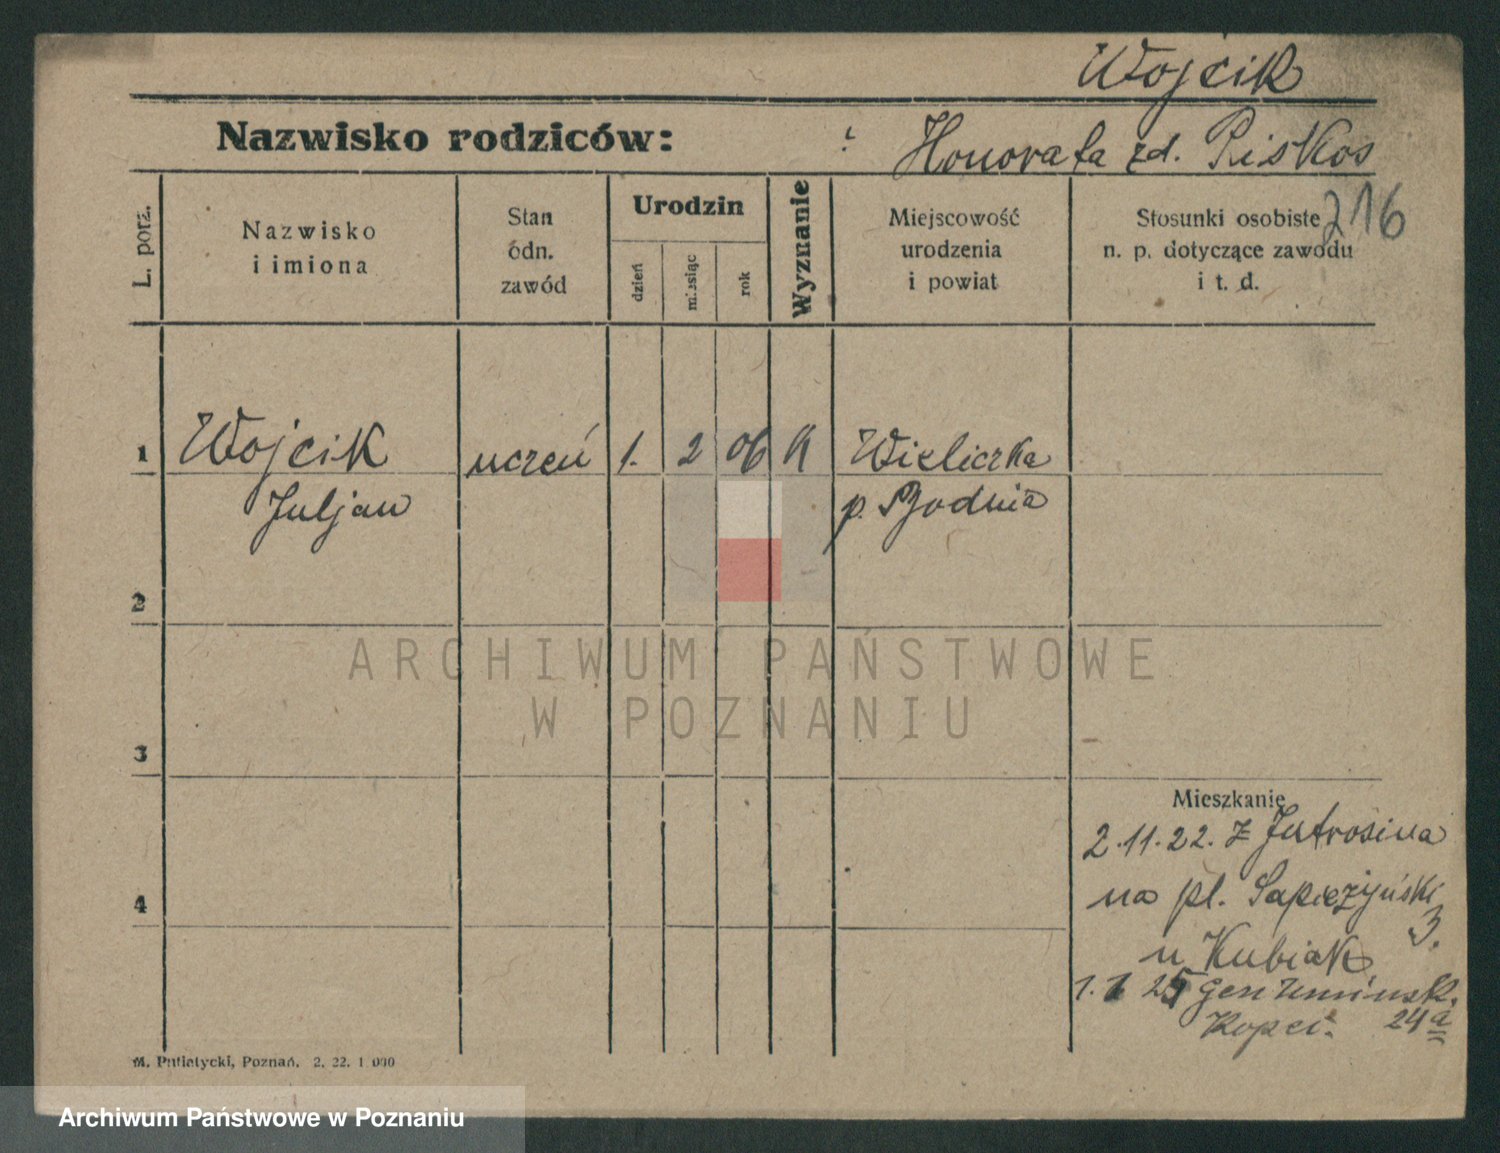 Wojcik
Nazwisko rodziców:
Honorata zd. Piskos
216
L. porz.
Nazwisko
i imiona
Stan
ódn.
zawód
Urodzin
dzień
miesiąc
rok
Wyznanie
Miejscowość
urodzenia
i powiat
Stosunki osobiste
n. p. dotyczące zawodu
i t. d.
1 Wojcik uczeń 1. 2 06 K Wieliczka
Juljan p. Bodnia
2
ARCHIWUM PAŃSTWOWE
W POZNANIU
3
Mieszkanie
2.11.22. z Jutrosina
na pl. Sapieżyński
3.
4
u Kubiak
1. 1 25 Gen Umińsk.
24a
M. Putiatycki, Poznań. 2. 22. 1 000
Archiwum Państwowe w Poznaniu